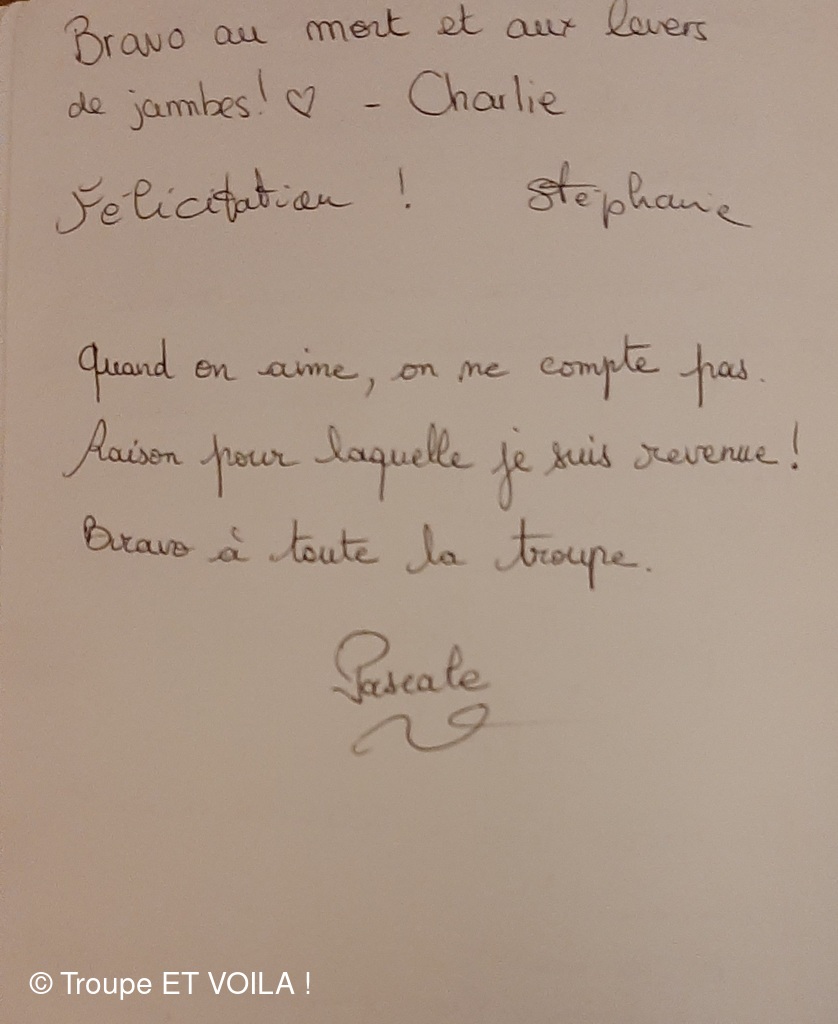 Bravo au mort et aux levers
de jambes! ♡ - Charlie
Félicitation ! Stéphanie
Quand on aime, on ne compte pas.
Raison pour laquelle je suis revenue !
Bravo à toute la troupe.
Pascale
© Troupe ET VOILA !